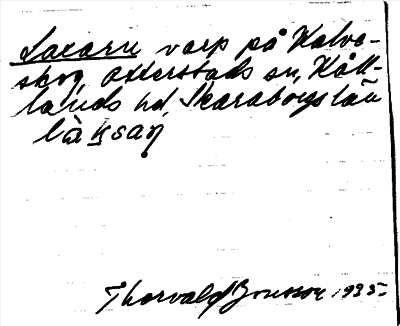 Laxaru varp på Kalvö-
skog, Otterstads sn, Kål-
lands hd, Skaraborgs län
läksaŋ
Thorvald Jonsson 1935